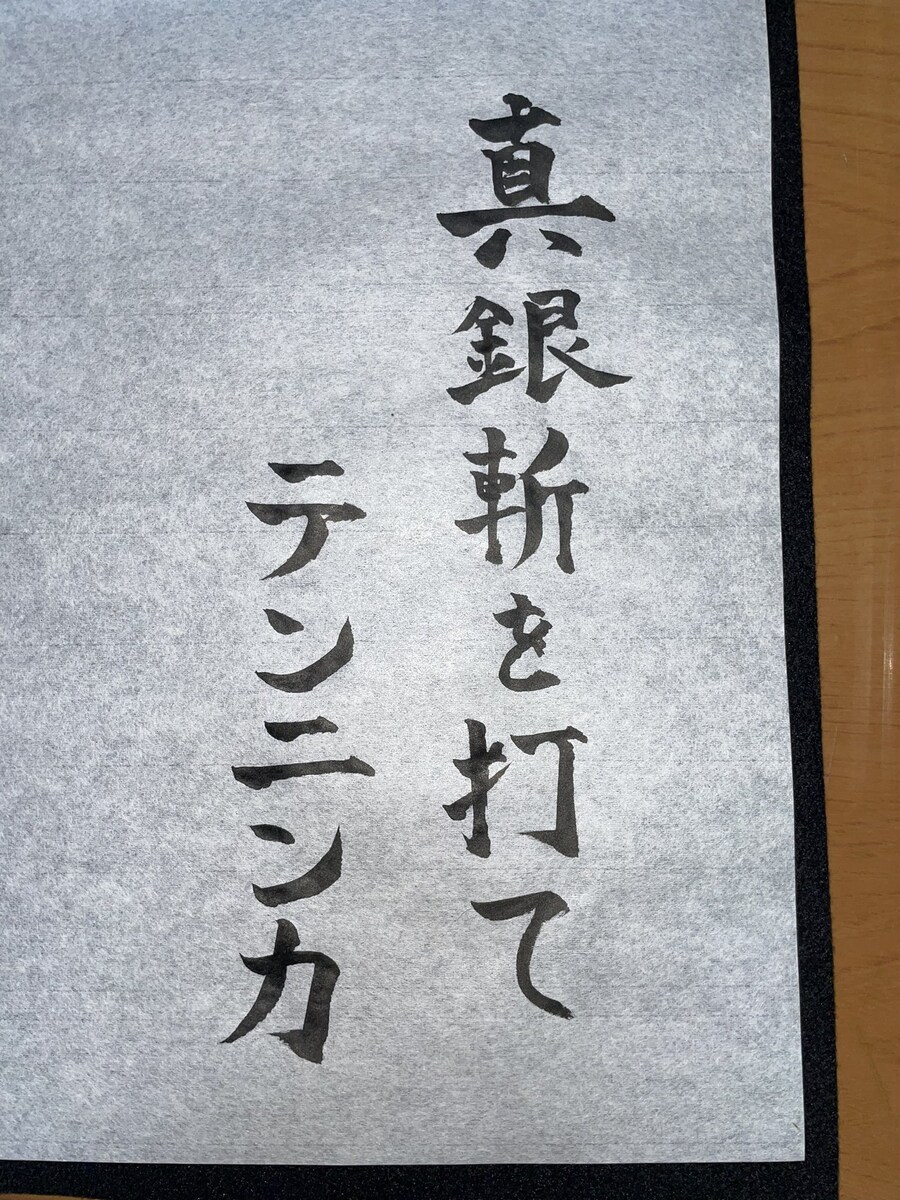 真銀斬を打て
テンニンカ